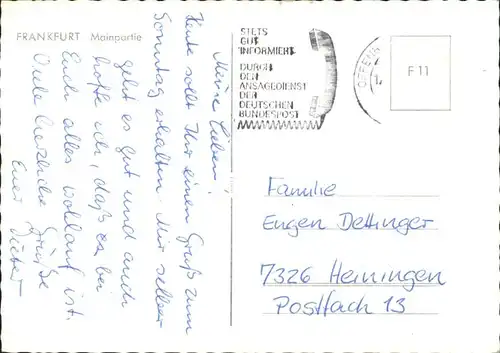 FRANKFURT Mainpartie
Meine Lieben!
Heute sollt Ihr einen Gruß zum
Sonntag erhalten. Mir selber
geht es gut und auch
hoffe ich, daß es bei
Euch alles wohlauf ist.
Viele herzliche Grüße
Euer Dieter
STETS
GUT
INFORMIERT
DURCH
DEN
ANSAGEDIENST
DER
DEUTSCHEN
BUNDESPOST
F 11
Familie
Eugen Dettinger
7326 Heiningen
Postfach 13